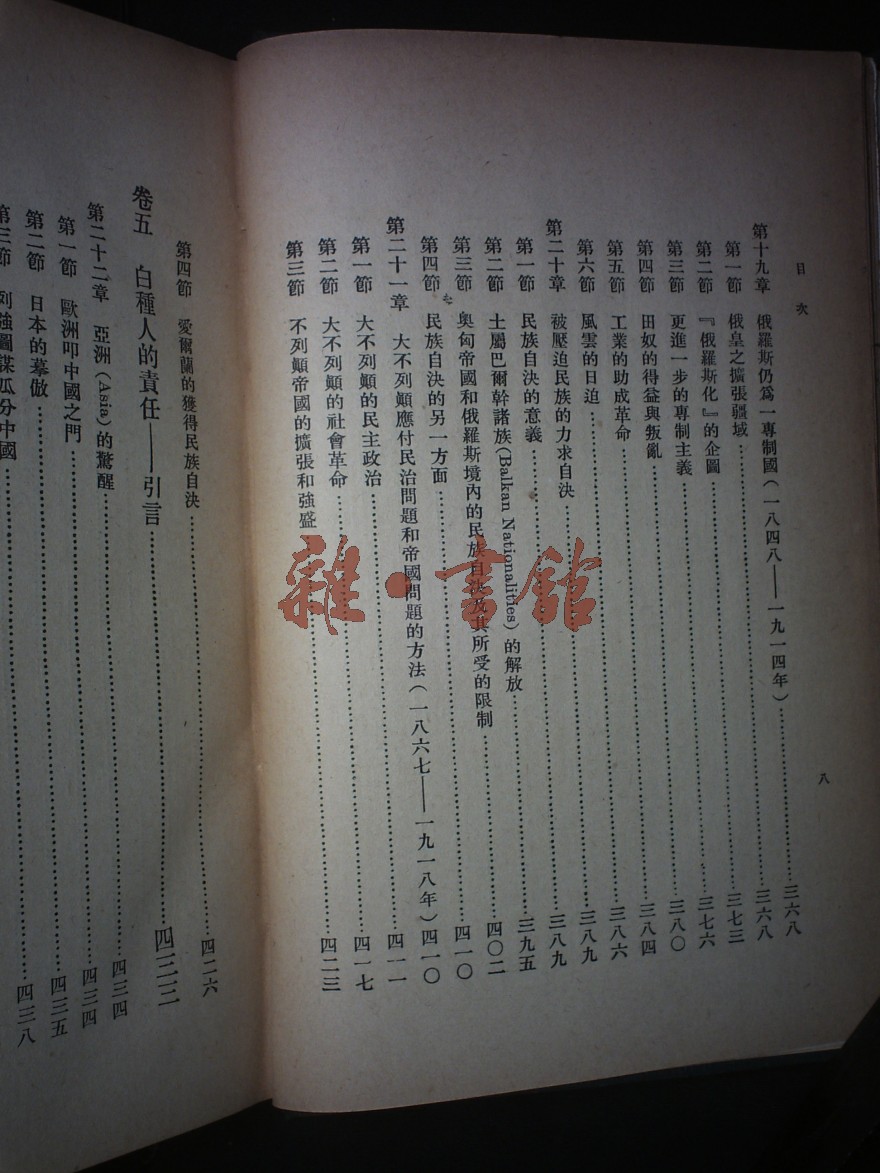 目次
八
第十九章 俄羅斯仍爲一專制國(一八四八——一九一四年)……三六八
第一節 俄皇之擴張疆域……三六八
第二節 『俄羅斯化』的企圖……三七三
第三節 更進一步的專制主義……三七六
第四節 田奴的得益與叛亂……三八〇
第五節 工業的助成革命……三八四
第六節 風雲的日迫……三八六
第二十章 被壓迫民族的力求自決……三八九
第一節 民族自決的意義……三八九
第二節 土屬巴爾幹諸族(Balkan Nationalities)的解放……三九五
第三節 奧匈帝國和俄羅斯境內的民族自決及其所受的限制……四〇二
第四節 民族自決的另一方面……四一〇
第二十一章 大不列顛應付民治問題和帝國問題的方法(一八六七——一九一八年)……四一〇
第一節 大不列顛的民主政治……四一一
第二節 大不列顛的社會革命……四一七
第三節 不列顛帝國的擴張和強盛……四二三
第四節 愛爾蘭的獲得民族自決……四二六
卷五 白種人的責任——引言……四三三
第二十二章 亞洲(Asia)的驚醒……四三四
第一節 歐洲叩中國之門……四三四
第二節 日本的摹倣……四三五
第三節 列強圖謀瓜分中國……四三八
雜·書館